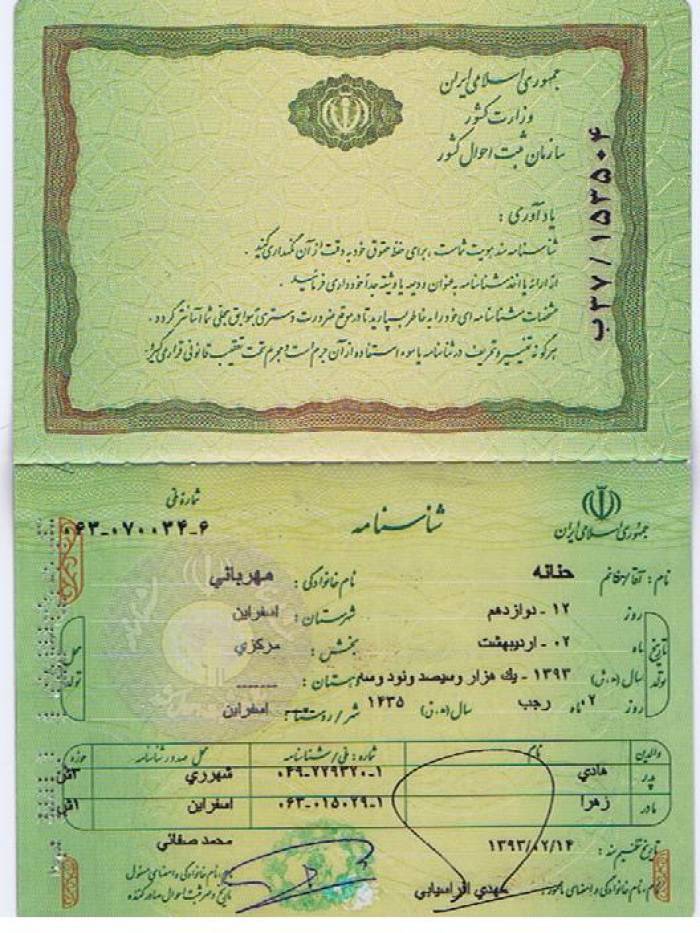 جمهوری اسلامی ایران
وزارت کشور
سازمان ثبت احوال کشور
ب۳۷/۱۵۳۵۰۴
یادآوری :
شناسنامه سند هویت شماست ، برای حفظ حقوق خود به دقت از آن نگهداری کنید .
از ارائه یا اخذ شناسنامه به عنوان ودیعه یا وثیقه جداً خودداری فرمائید .
مشخصات شناسنامه ای خود را به خاطر بسپارید تا در موقع ضرورت دسترسی به سوابق سجلی شما آسانتر گردد .
هرگونه تغییر و تحریف در شناسنامه یا سوء استفاده از آن جرم است و مجرم تحت تعقیب قانونی قرار می گیرد .
جمهوری اسلامی ایران
شناسنامه
شماره ملی
۰۶۳-۰۷۰۰۳۴-۶
نام : آقا/خانم حنانه نام خانوادگی : مهربانی
تاریخ تولد
روز ۱۲ - دوازدهم شهرستان : اسفراین
ماه ۰۲ - اردیبهشت بخش : مرکزي
سال (ه.ش) ۱۳۹۳ - یك هزار وسیصد ونود وسه دهستان : ------
روز ۰۲ ماه رجب سال (ه.ق) ۱۴۳۵ شهر / روستا : اسفراین
محل تولد
والدین نام شماره : ملی / شناسنامه محل صدور شناسنامه حوزه
پدر هادي ۰۴۹-۷۷۹۳۲۰-۱ شهرري ۳ش
مادر زهرا ۰۶۳-۰۱۵۰۲۹-۱ اسفراین ۱ش
تاریخ تنظیم سند : ۱۳۹۳/۰۲/۱۴ محمد صفائي
نام ، نام خانوادگی و امضای مامور : مهدي افراسیابي
نام ، نام خانوادگی و امضای مسئول
تاریخ و مهر ثبت احوال صادر کننده